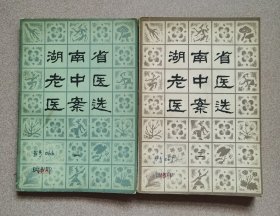 湖南省
老中医
医案选
一
湖南省
老中医
医案选
二